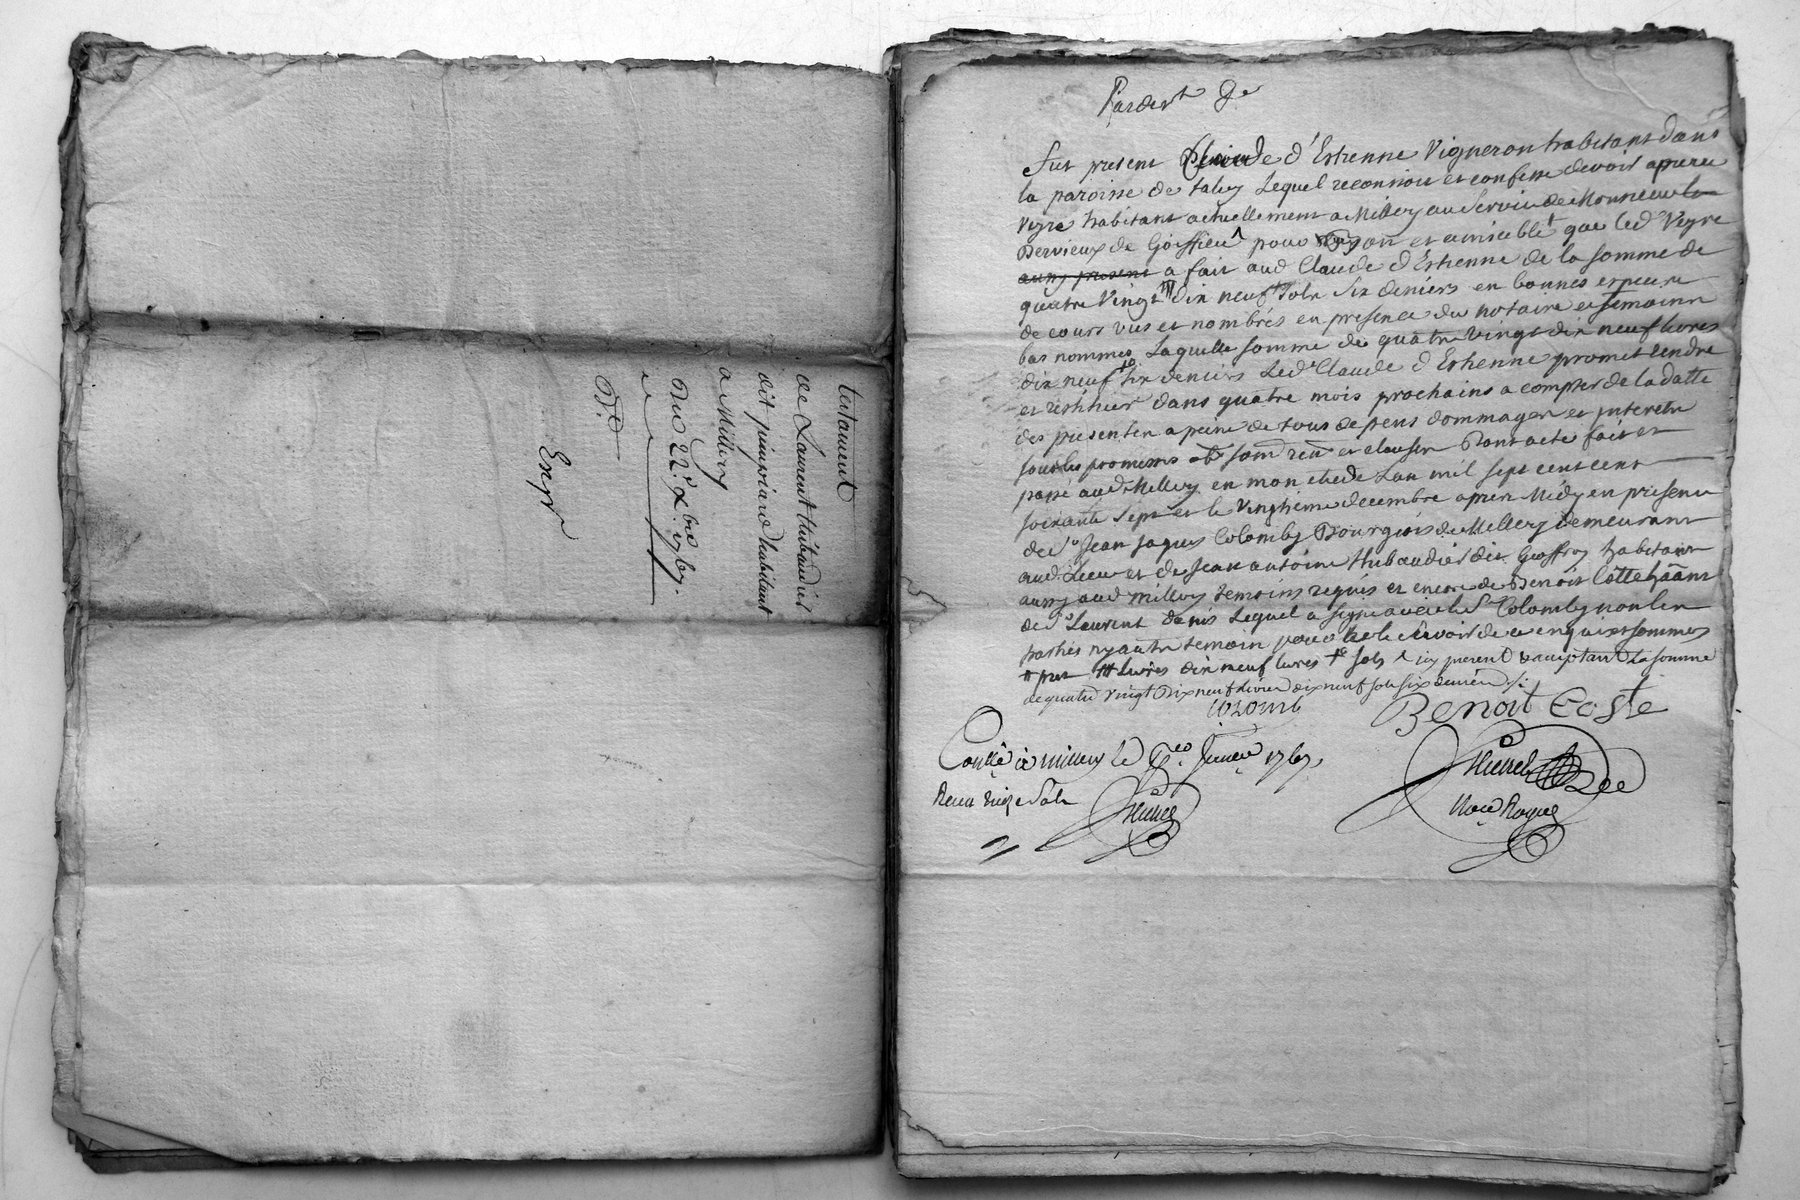 testament
de Laurent thibaudier
dit painpviard habitant
a Millery
Du 22.e Xbre 1767.
Exep.
Pardevt &e
fut present Claude d'Estienne Vigneron habitant dans
la paroisse de taluy Lequel reconnoit et confesse devoir a pierre
Veyre habitant actuellement a Millery au Service de Monsieur
Dervieux de Goiffieu pour et amiable que led Veyre
aussy present a fait aud Claude d'Estienne de la somme de
quatre Vingt dix neuf sols Six deniers en bonnes especes
de cours vues et nombrés en presence du notaire et temoins
bas nommes Laquelle somme de quatre Vingt dix neuf livres
dix neuf six deniers Led Claude d'Estienne promet rendre
et restituer dans quatre mois prochains a compter de la datte
des presentes a peine de tous depens dommages et interets
sous les promesses obs soms ren et clauses Dont acte fait et
passé aud Millery en mon etude L'an mil sept cent cent
soixante Sept et le Vingtieme decembre apres Midy en presence
de Sr Jean Jaques Colomby Bourgeois de Millery demeurant
aud Lieu et de Jean antoine thibaudier dit Geoffroy habitant
aussy aud Millery temoins requis et encore de Benoit Cotte habitant
de St Laurent Lequel a signé avec led Sr Colomby non les
parties ny autre temoin pour ne le sçavoir de ce enquis et sommes
livres dix neuf livres sols icy present acceptant La somme
de quatre vingt Dix neuf livres dix neuf sols six deniers
Colomb
Benoit Coste
Conllé a millery le Janer 1767
Thevenet
Recu Sols
Thevenet
Nore Royal